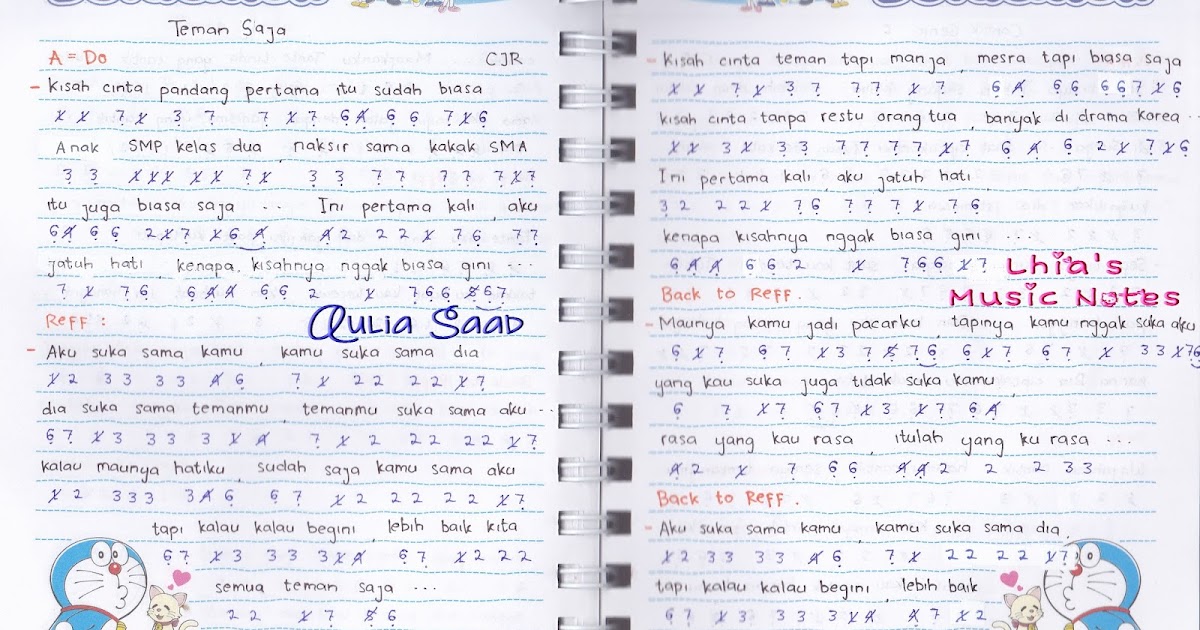 Teman Saja
A = Do CJR
- Kisah cinta pandang pertama itu sudah biasa
1̸ 1̸ 7 1̸ 3 7 7 1̸ 7 6 4̸ 6 6 7 1̸ 6
Anak SMP kelas dua, naksir sama kakak SMA
3 3 1̸ 1̸ 1̸ 1̸ 1̸ 7 1̸ 3 3 7 7 7 7 7 1̸ 7
itu juga biasa saja ... Ini pertama kali, aku
6 4̸ 6 6 2 1̸ 7 1̸ 6 4̸ 4̸ 2 2 2 1̸ 7 6 7 7
jatuh hati, kenapa kisahnya nggak biasa gini ...
7 1̸ 7 6 6 4̸ 4̸ 6 6 2 1̸ 7 6 6 5̸ 6 7
Reff :
Aulia Saad
- Aku suka sama kamu, kamu suka sama dia
1̸ 2 3 3 3 3 4̸ 6 7 1̸ 2 2 2 2 1̸ 7
dia suka sama temanmu, temanmu suka sama aku ...
6 7 1̸ 3 3 3 3 1̸ 4̸ 7 1̸ 2 2 2 2 2 1̸ 7
kalau maunya hatiku, sudah saja kamu sama aku
1̸ 2 3 3 3 3 4̸ 6 6 7 1̸ 2 2 2 2 2 1̸ 7
tapi kalau kalau begini, lebih baik kita
6 7 1̸ 3 3 3 3 1̸ 4̸ 6 7 1̸ 2 2 2
semua teman saja ...
2 2 1̸ 7 5̸ 6
- Kisah cinta teman tapi manja, mesra tapi biasa saja
1̸ 1̸ 7 1̸ 3 7 7 7 1̸ 7 6 4̸ 6 6 6 6 7 1̸ 6
kisah cinta tanpa restu orang tua, banyak di drama Korea ...
1̸ 1̸ 3 1̸ 3 3 7 7 7 7 1̸ 7 6 4̸ 6 2 1̸ 7 1̸ 6
Ini pertama kali, aku jatuh hati,
3 2 2 2 1̸ 7 6 7 7 7 1̸ 7 6
kenapa kisahnya nggak biasa gini ....
6 4̸ 4̸ 6 6 2 1̸ 7 6 6 1̸ 7
Lhia's
Music Notes
Back to Reff.
- Maunya kamu jadi pacarku, tapinya kamu nggak suka aku
6 1̸ 7 6 7 1̸ 3 7 5̸ 7 6 6 1̸ 7 6 7 1̸ 3 3 1̸ 7 6
yang kau suka juga tidak suka kamu,
6 7 1̸ 7 6 7 1̸ 3 1̸ 7 6 4̸
rasa yang kau rasa, itulah yang ku rasa ...
4̸ 2 1̸ 7 6 6 4̸ 4̸ 2 2 2 3 3
Back to Reff.
- Aku suka sama kamu, kamu suka sama dia,
1̸ 2 3 3 3 3 4̸ 6 7 1̸ 2 2 2 2 1̸ 7
tapi kalau kalau begini, lebih baik
6 7 1̸ 3 3 3 3 1̸ 4̸ 4̸ 7 1̸ 2